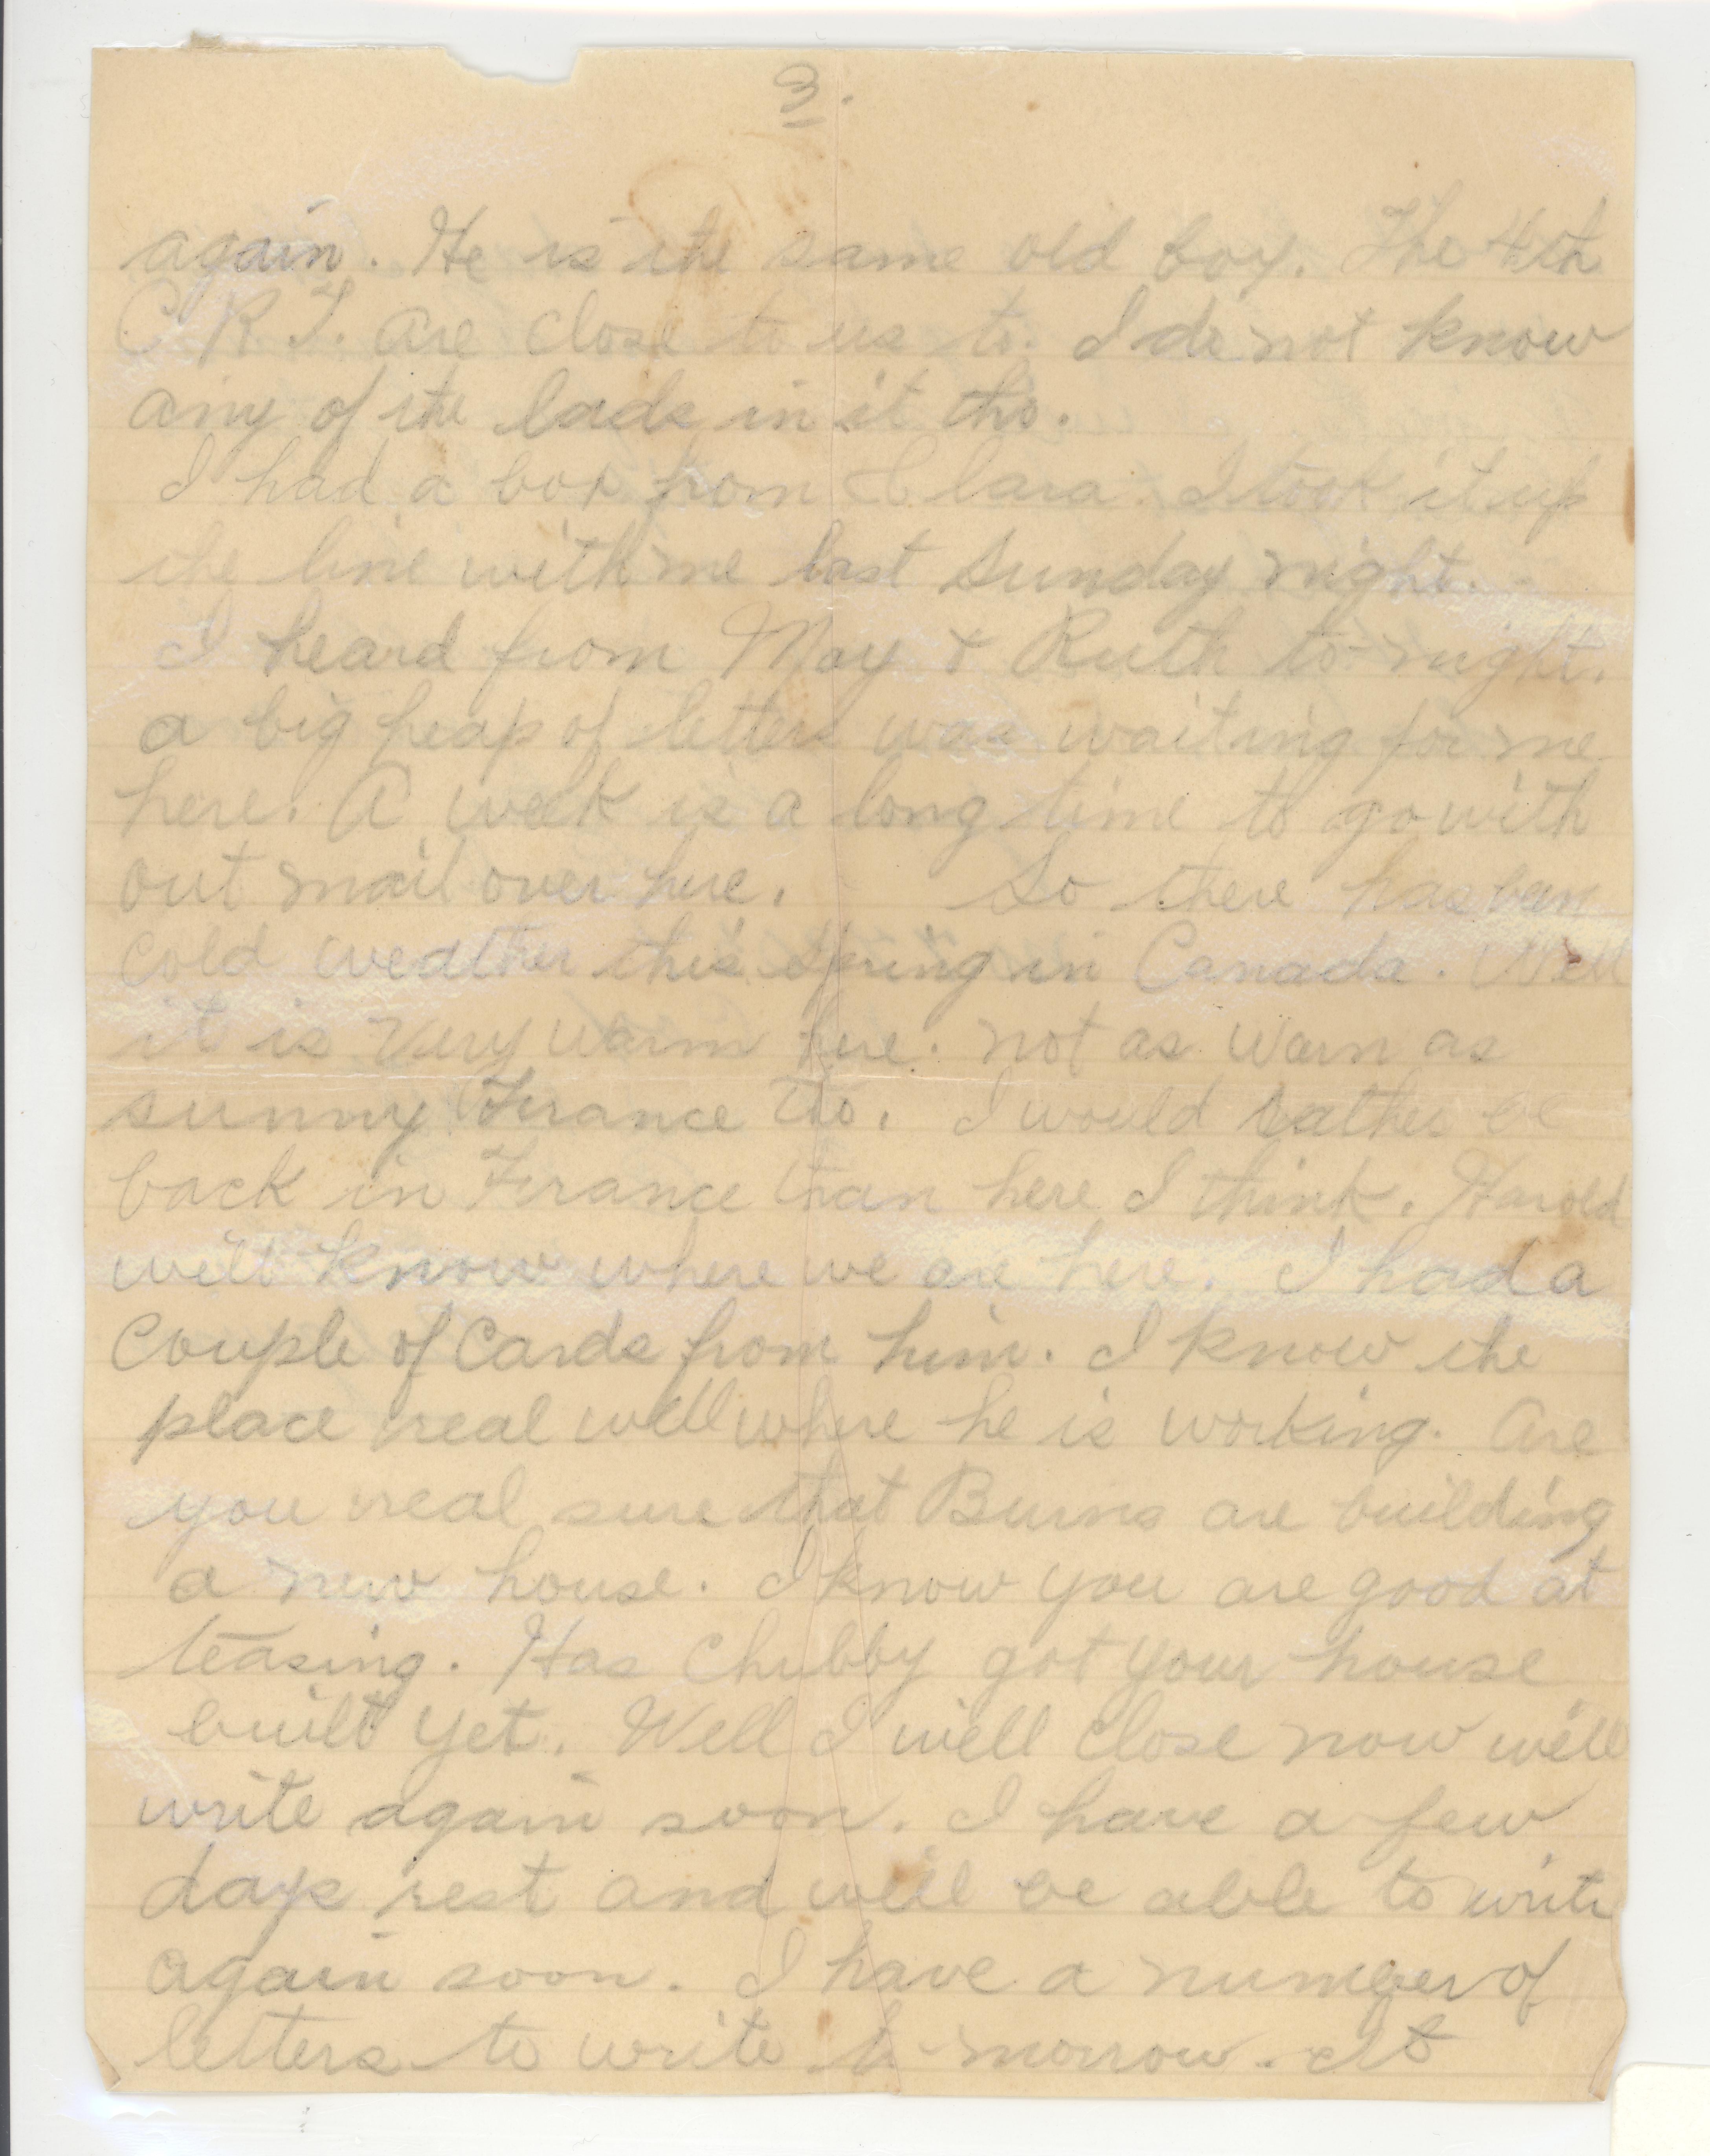 3.
again. He is the same old boy. The 4th
C R. T. are close to us to. I do not know
any of the lads in it tho.
I had a box from Clara. I took it up
the line with me last Sunday night.
I heard from May & Ruth to-night.
a big heap of letters was waiting for me
here. A week is a long time to go with
out mail over here. So there has been
cold weather this spring in Canada. Well
it is very warm here. not as warm as
sunny France tho. I would rather be
back in France than here I think. Harold
will know where we are here. I had a
couple of cards from him. I know the
place real well where he is working. Are
you real sure that Burns are building
a new house. I know you are good at
teasing. Has Chubby got your house
built yet. Well I will close now will
write again soon. I have a few
days rest and will be able to write
again soon. I have a number of
letters to write to-morrow. It